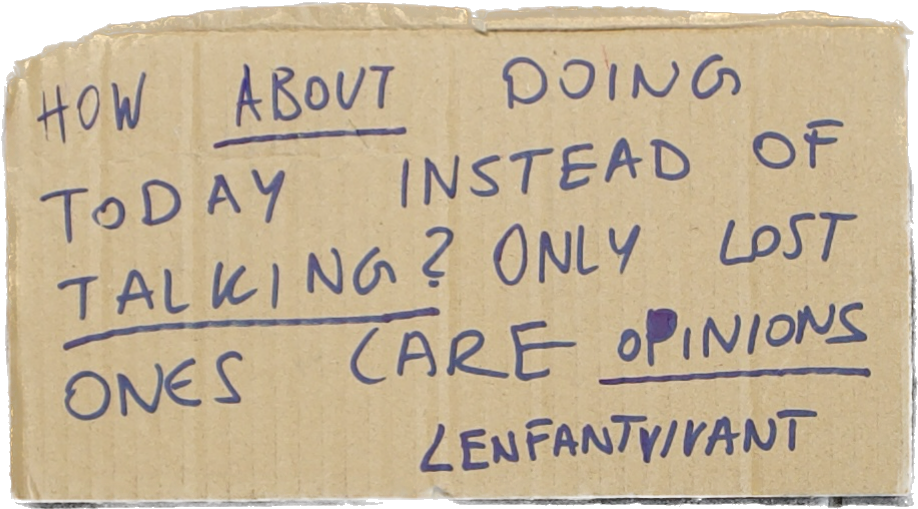 HOW ABOUT DOING
TODAY INSTEAD OF
TALKING? ONLY LOST
ONES CARE OPINIONS
LENFANTVIVANT